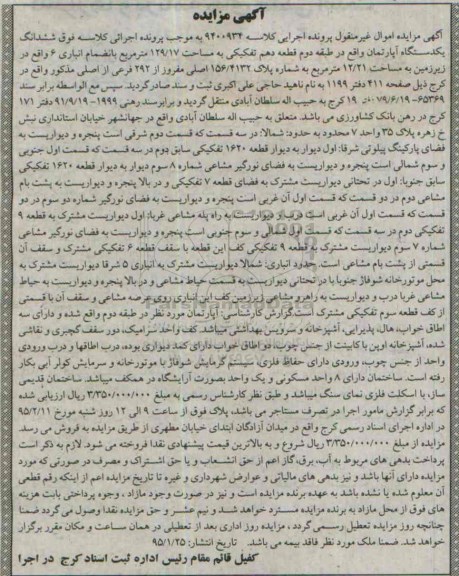 آگهی مزایده
آگهی مزایده اموال غیرمنقول پرونده اجرایی کلاسه ۹۴۰۰۹۳۴ به موجب پرونده اجرائی کلاسه فوق ششدانگ
یکدستگاه آپارتمان واقع در طبقه دوم قطعه دهم تفکیکی به مساحت ۱۲۹/۱۷ مترمربع بانضمام انباری ۶ واقع در
زیرزمین به مساحت ۱۲/۲۱ مترمربع به شماره پلاک ۱۵۶/۴۱۳۲ اصلی مفروز از ۲۹۲ فرعی از اصلی مذکور واقع در
کرج ذیل صفحه ۴۱۱ دفتر ۱۱۹۹ به نام ناهید حاجی علی اکبری ثبت و سند صادرگردید. سپس مع الواسطه برابر سند
۶۵۳۶۹-۰۷۹/۶/۱۹ دفتر ۱۹ کرج به حبیب اله سلطان آبادی منتقل گردید و برابرسند رهنی ۱۹۹۹-۹۱/۹/۱۹ دفتر ۱۷۱
کرج در رهن بانک کشاورزی می باشد. متعلق به حبیب اله سلطان آبادی واقع در جهانشهر خیابان استانداری نبش
خ زهره پلاک ۳۵ واحد ۷ محدود به حدود: شمالا: در سه قسمت که قسمت دوم شرقی است پنجره و دیواریست به
فضای پارکینگ پیلوتی شرقا: اول دیوار به دیوار قطعه ۱۶۲۰ تفکیکی سابق دوم در سه قسمت که قسمت اول جنوبی
و سوم شمالی است پنجره و دیواریست به فضای نورگیر مشاعی شماره ۸ سوم دیوار به دیوار قطعه ۱۶۲۰ تفکیکی
سابق جنوبا: اول در تحتانی دیواریست مشترک به فضای قطعه ۷ تفکیکی و در بالا پنجره و دیواریست به پشت بام
مشاعی دوم در دو قسمت که قسمت اول آن غربی است پنجره و دیواریست به فضای نورگیر شماره دو سوم در دو
قسمت که قسمت اول آن غربی است درب و دیواریست به راه پله مشاعی غربا: اول دیواریست مشترک به قطعه ۹
تفکیکی دوم در سه قسمت که قسمت اول شمالی و سوم جنوبی است پنجره و دیواریست به فضای نورگیر مشاعی
شماره ۷ سوم دیواریست مشترک به قطعه ۹ تفکیکی کف این قطعه با سقف قطعه ۶ تفکیکی مشترک و سقف آن
قسمتی از پشت بام مشاعی است. حدود انباری: شمالا دیواریست مشترک به انباری ۵ شرقا دیواریست مشترک به
محل موتورخانه شوفاژ جنوبا با در تحتانی دیواریست به قسمت حیاط مشاعی و در بالا پنجره و دیواریست به حیاط
مشاعی غربا درب و دیواریست به راهرو مشاعی زیرزمین کف این انباری روی عرصه مشاعی و سقف آن با قسمتی
از کف قطعه سوم تفکیکی مشترک است گزارش کارشناسی: آپارتمان مورد نظر در طبقه دوم واقع شده و دارای سه
اطاق خواب، هال، پذیرایی، آشپزخانه و سرویس بهداشتی میباشد. کف واحد سرامیک، دور سقف گچبری و نقاشی
شده، آشپزخانه اوپن با کابینت از جنس چوب، دو اطاق خواب دارای کمد دیواری بوده، درب اطاقها و درب ورودی
واحد از جنس چوب، ورودی دارای حفاظ فلزی، سیستم گرمایش شوفاژ با موتورخانه و سرمایش کولر آبی بکار
رفته است. ساختمان دارای ۸ واحد مسکونی و یک واحد بصورت آرایشگاه در همکف میباشد. ساختمان قدیمی
ساز، با اسکلت فلزی نمای سنگ میباشد و طبق نظر کارشناس رسمی به مبلغ ۳/۳۵۰/۰۰۰/۰۰۰ ریال ارزیابی شده
که برابر گزارش مامور اجرا در تصرف مستاجر می باشد، پلاک فوق از ساعت ۹ الی ۱۲ روز شنبه مورخ ۹۵/۲/۱۱
در اداره اجرای اسناد رسمی کرج واقع در میدان آزادگان ابتدای خیابان مطهری از طریق مزایده به فروش می رسد.
مزایده از مبلغ ۳/۳۵۰/۰۰۰/۰۰۰ ریال شروع و به بالاترین قیمت پیشنهادی نقدا فروخته می شود. لازم به ذکر است
پرداخت بدهی های مربوط به آب، برق، گاز اعم از حق انشعاب و یا حق اشتراک و مصرف در صورتی که مورد
مزایده دارای آنها باشد و نیز بدهی های مالیاتی و عوارض شهرداری و غیره تا تاریخ مزایده اعم از اینکه رقم قطعی
آن معلوم شده یا نشده باشد به عهده برنده مزایده است و نیز در صورت وجود مازاد ، وجوه پرداختی بابت هزینه
های فوق از محل مازاد به برنده مزایده مسترد خواهد شد و نیم عشر و حق مزایده نقدا وصول می گردد ضمنا
چنانچه روز مزایده تعطیل رسمی گردد ، مزایده روز اداری بعد از تعطیلی در همان ساعت و مکان مقرر برگزار
خواهد شد. ضمنا ملک مورد نظر فاقد بیمه می باشد. تاریخ انتشار: ۹۵/۱/۲۵
کفیل قائم مقام رئیس اداره ثبت اسناد کرج در اجرا